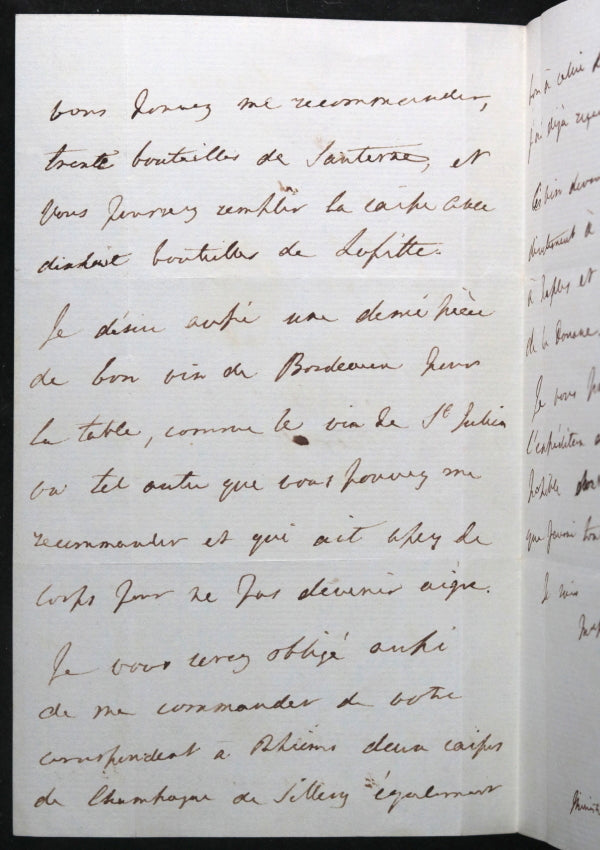 vous pouvez me recommander,
trente bouteilles de Sauterne, et
vous pourrez remplir la caisse avec
dixhuit bouteilles de Lafitte.
Je désire aussi une demi pièce
de bon vin de Bordeaux pour
la table, comme le vin de St Julien
ou tel autre que vous pouvez me
recommander et qui ait assez de
corps pour ne pas devenir aigre.
Je vous serez obligé aussi
de me commander de votre
correspondent à Rheims deux caisses
de Champagne de Sillery également
j'ai déjà
à Naples et
de la Douane
Je vous
l'expédition
possible
que
Je suis